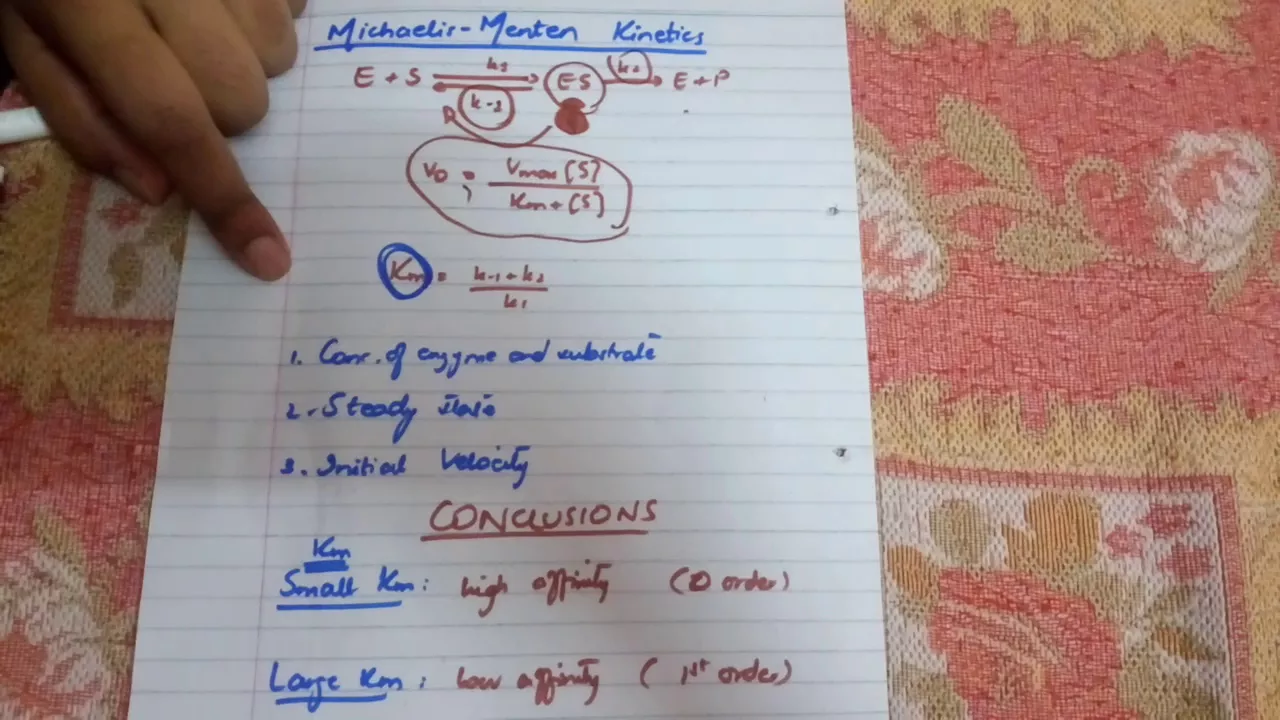 Michaelis-Menten Kinetics
E + S k1 k-1 ES k2 E + P
V0 = Vmax [S] / Km + [S]
Km = k-1 + k2 / k1
1. Conc. of enzyme and substrate
2. Steady state
3. Initial Velocity
CONCLUSIONS
Km
Small Km : high affinity (0 order)
Large Km : low affinity (1st order)